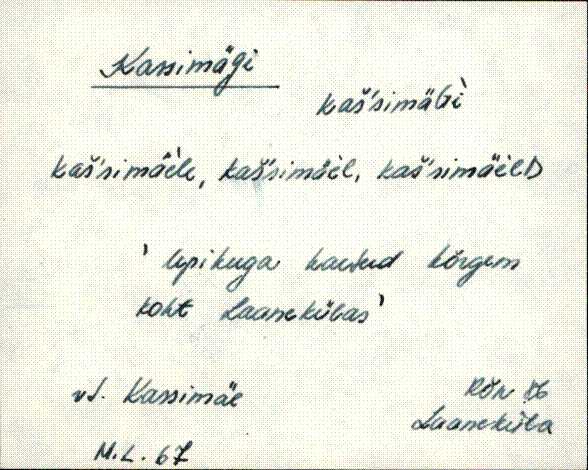 Kassimägi
kaš'simäGì
kaš'simäèle, kaš'simäèl, kaš'simäèlD
' lepikuga kaetud kõrgem
koht Laanekülas'
vt. Kassimäe
Rõn
Laaneküla
M.L. 67